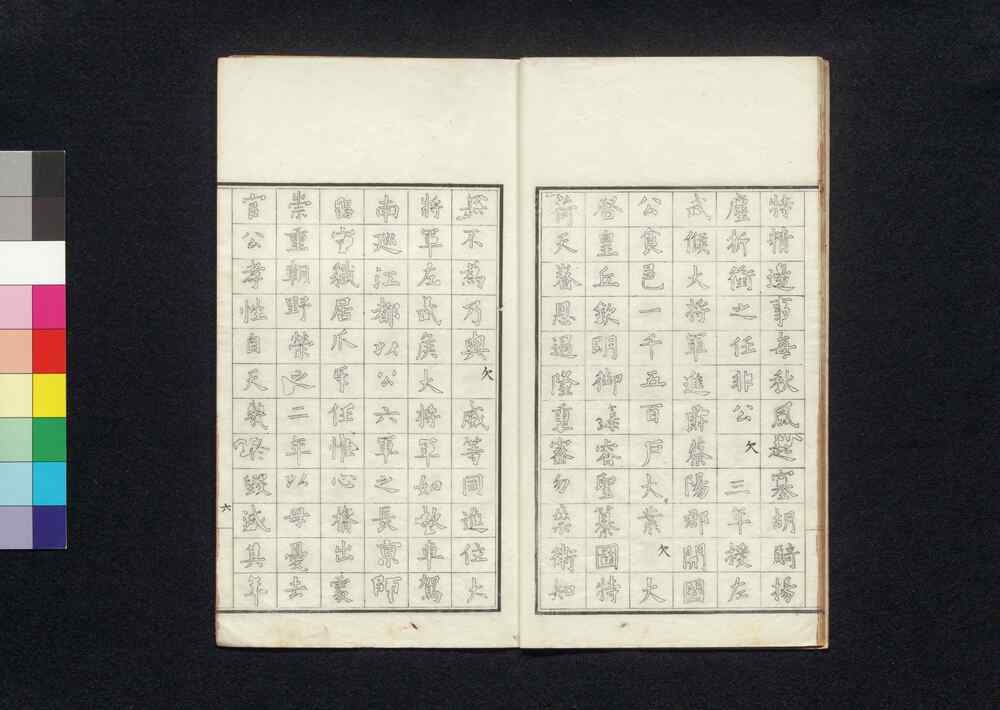 特情邊事每秋風起塞胡騎揚
塵折衝之任非公欠三年授左
武候大將軍進爵蔡陽郡開國
公食邑一千五百戶大業欠大
啓皇丘欽明御睿聖纂圖特
荷天眷恩遇隆重密勿禁衛知
無不為乃與欠威等同進位大
將軍左武侯大將軍如故車駕
南巡江都以公六軍之長京師
留守職居爪牙任惟心膂出處
崇重朝野榮之二年以母憂去
官公孝性自天毀滅其年
六